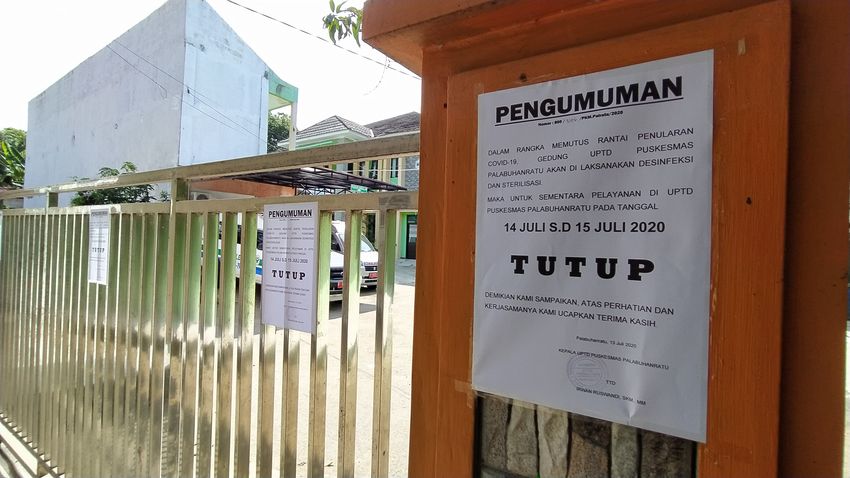 PENGUMUMAN
DALAM RANGKA MEMUTUS RANTAI PENULARAN
COVID-19, GEDUNG UPTD PUSKESMAS
PALABUHANRATU AKAN DI LAKSANAKAN DESINFEKSI
DAN STERILISASI.
MAKA UNTUK SEMENTARA PELAYANAN DI UPTD
PUSKESMAS PALABUHANRATU PADA TANGGAL
14 JULI S.D 15 JULI 2020
TUTUP
DEMIKIAN KAMI SAMPAIKAN, ATAS PERHATIAN DAN
KERJASAMANYA KAMI UCAPKAN TERIMA KASIH
Palabuhanratu, 13 Juli 2020
KEPALA UPTD PUSKESMAS PALABUHANRATU
TTD
RUSWANDI, SKM, MM
PENGUMUMAN
14 JULI S.D 15 JULI 2020
TUTUP